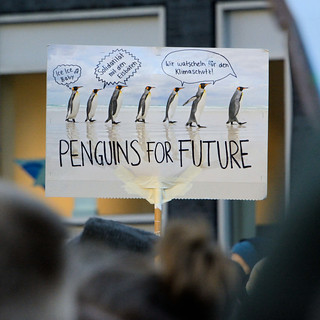 Ice Ice
Baby
Solidarität
mit den
Eisbären
Wir watscheln für den
Klimaschutz!
PENGUINS FOR FUTURE